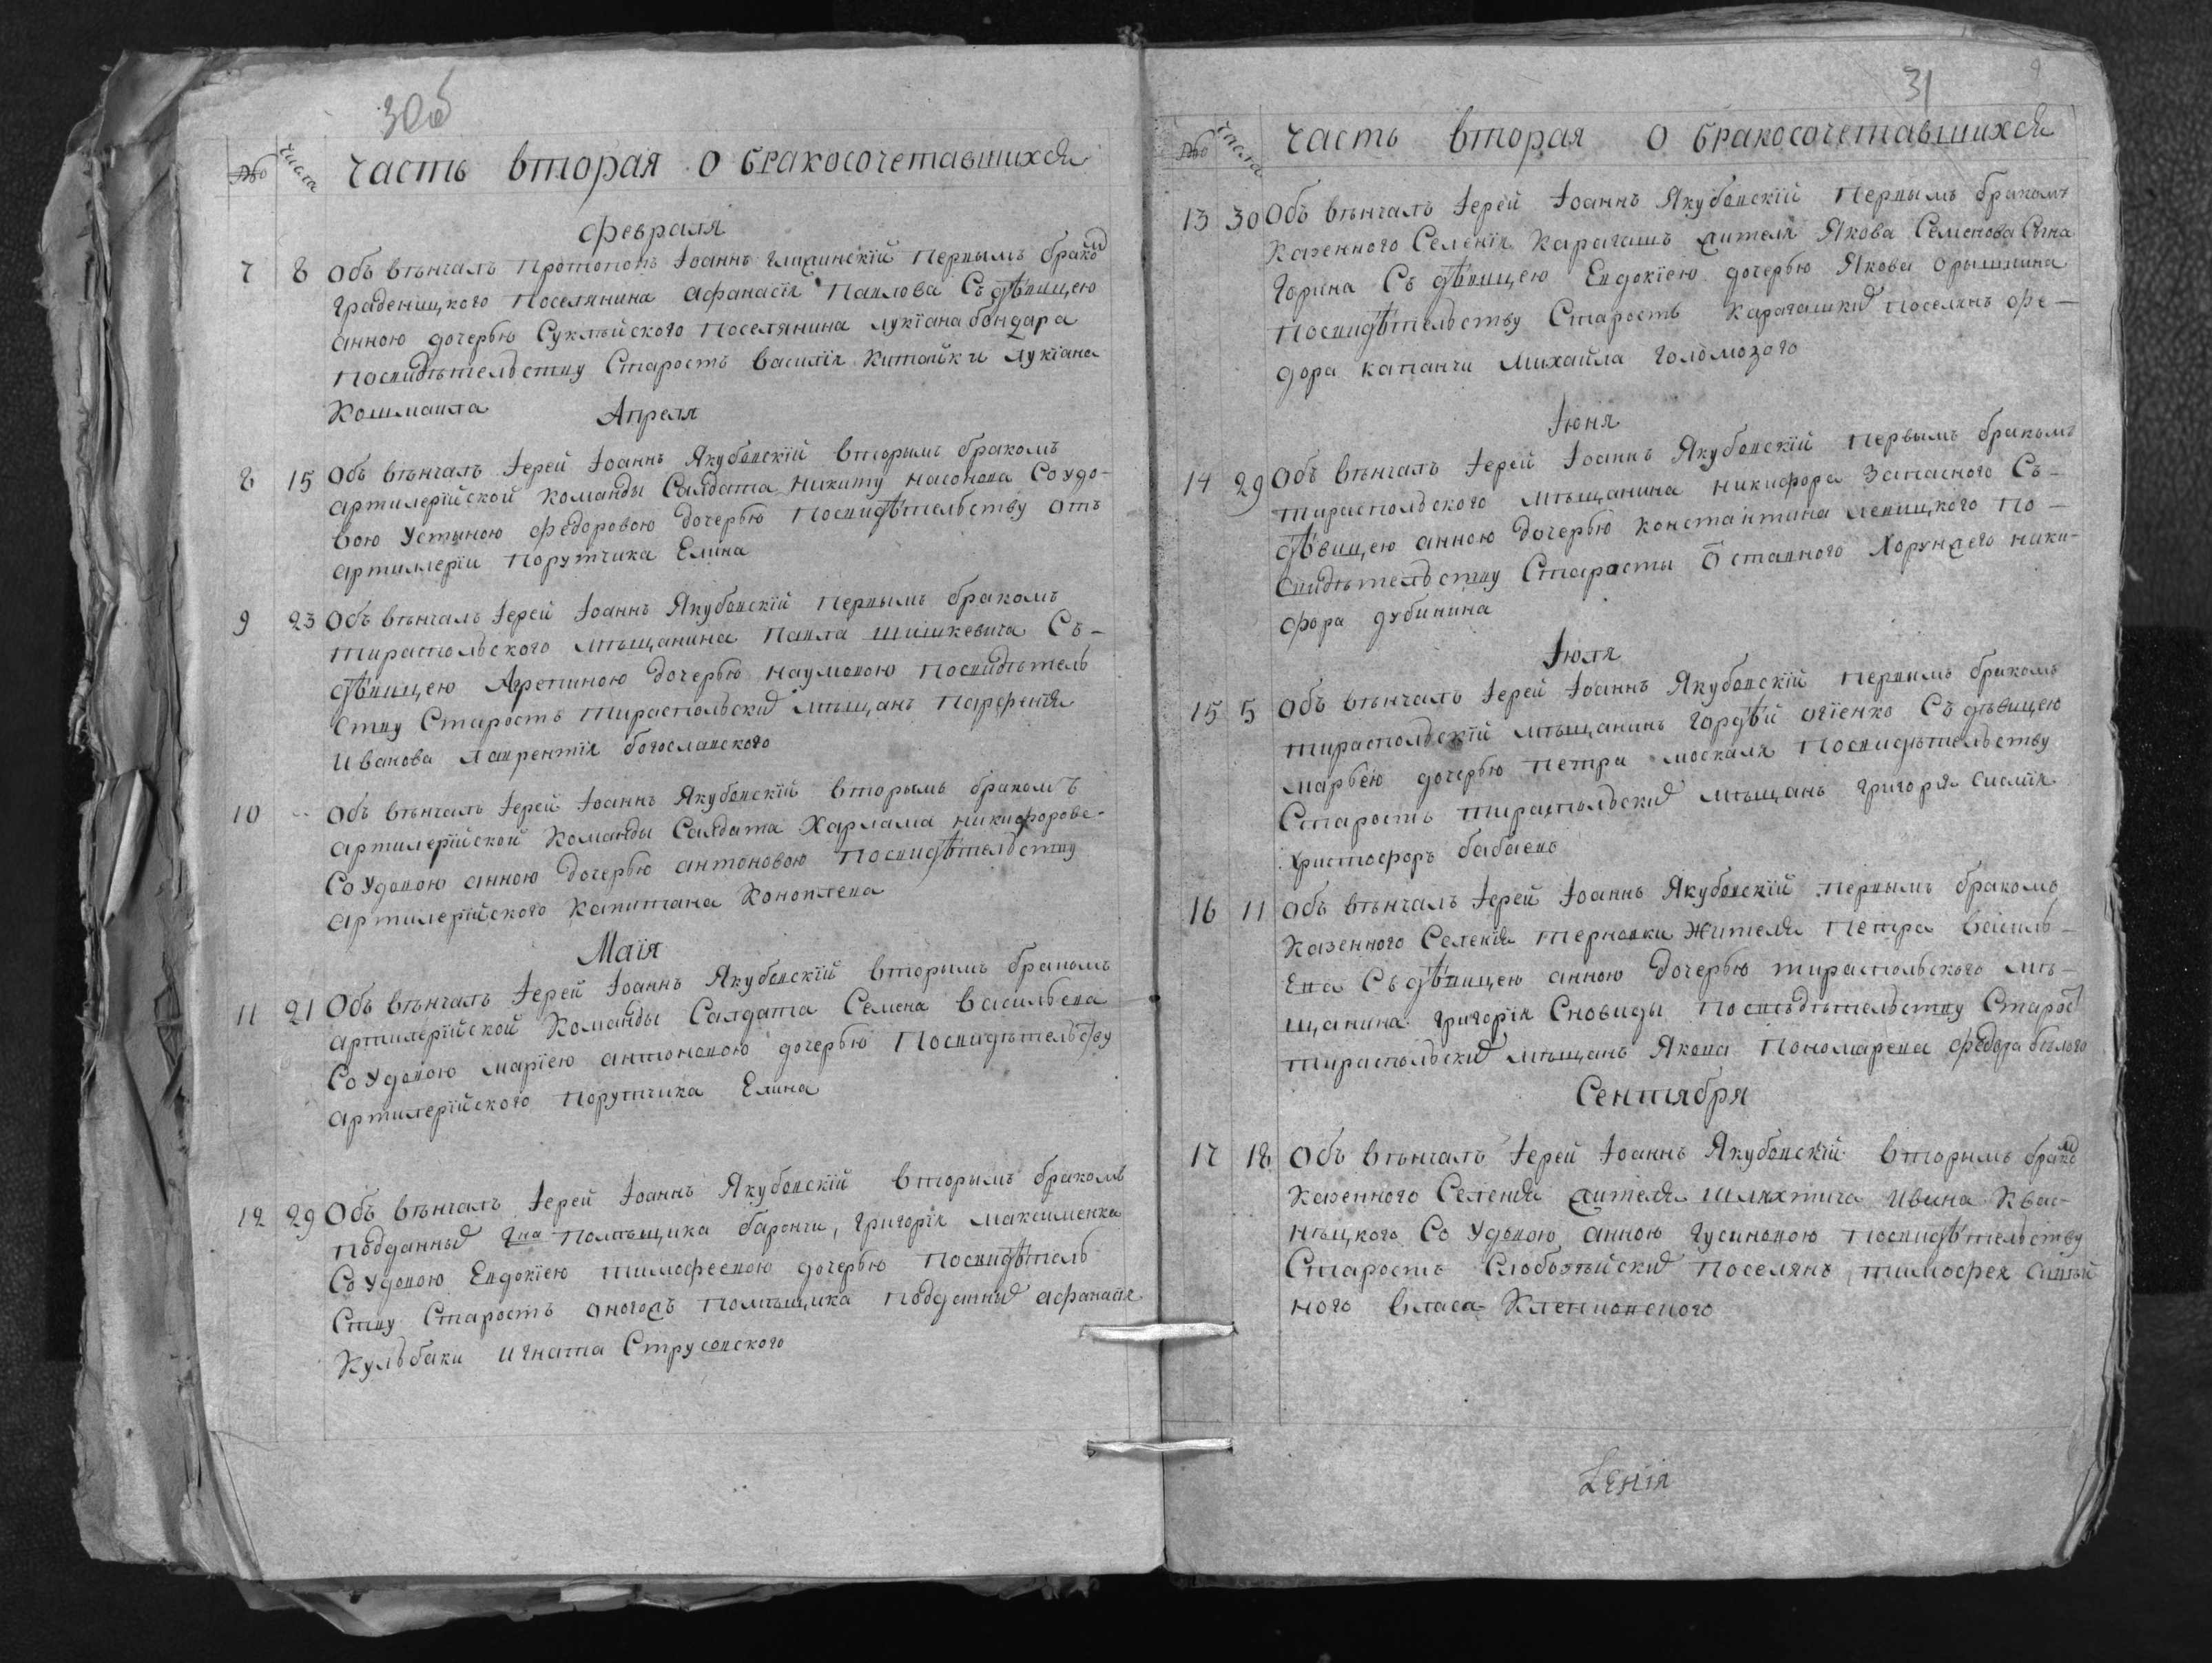 30об
№ числа Часть вторая о бракосочетавшихся
Февраля
7 8 Объ вѣнчалъ протопопъ Іоаннъ Глизинскій первымъ бракомъ
Граденицкого поселянина Афанасія Павлова съ дѣвицею
Анною дочерью Суклѣйского поселянина Лукіана бондара
посвидѣтельству старостъ Василія Китайки Лукіана
Кошмаила
Апреля
8 15 Объ вѣнчалъ Іерей Іоаннъ Якубовскій вторымъ бракомъ
артилерійской команды Салдата Никиту Насонова со удо-
вою Устиною Федоровою дочерью посвидѣтельству отъ
артиллеріи порутчика Елина
9 23 Объ вѣнчалъ Іерей Іоаннъ Якубовскій первымъ бракомъ
тираспольского мѣщанина Павла Шишкевича съ-
дѣвицею Агрепиною дочерью Наумовою посвидѣтель
ству старостъ тираспольских мѣщанъ Парфенія
Иванова Лаврентія богославского
10 Объ вѣнчалъ Іерей Іоаннъ Якубовскій вторымъ бракомъ
артилерійской команды Салдата Харлама Никифорове-
со Удовою Анною дочерью Антоновою посвидѣтельству
артилерійского капитана Коноплева
Маія
11 21 Объ вѣнчалъ Іерей Іоаннъ Якубовскій вторымъ бракомъ
артилерійской команды Салдата Семена Васильева
со Удовою Маріею Антоновою дочерью посвидѣтельству
артилерійского порутчика Елина
12 29 Объ вѣнчалъ Іерей Іоаннъ Якубовскій вторымъ бракомъ
подданных гна помѣщика барончи, Григорія Максименка
со Удовою Евдокіею Тимофеевою дочерью посвидѣтель
ству старостъ оногожъ помѣщика подданных Афанасія
Кульбаки Игната Струсовского
31
№ числа Часть вторая о бракосочетавшихся
13 30 Объ вѣнчалъ Іерей Іоаннъ Якубовскій первымъ бракомъ
казенного селенія Карагашъ жителя Якова Семенова сына
Горина съ дѣвицею Евдокіею дочерью Якова Орышнина
посвидѣтельству старостъ Карагашких поселянъ Фе-
дора Капанчи Михайла Голомозого
Іюня
14 29 Объ вѣнчалъ Іерей Іоаннъ Якубовскій первымъ бракомъ
тираспольского мѣщанина Никифора Запасного съ-
дѣвицею Анною дочерью Константина Левицкого по-
свидѣтельству старосты отставного Хорунжего Ники-
фора Дубинина
Іюля
15 5 Объ вѣнчалъ Іерей Іоаннъ Якубовскій первымъ бракомъ
тираспольскій мѣщанинъ Гордѣй Огіенко съ дѣвицею
Марвею дочерью Петра Москаля посвидѣтельству
старостъ тираспольских мѣщанъ Григорія
Христофоръ бабаевъ
16 11 Объ вѣнчалъ Іерей Іоаннъ Якубовскій первымъ бракомъ
казенного селенія Терновки жителя Петра Василь-
ева съ дѣвицею Анною дочерью тираспольского мѣ-
щанина Григорія Сновиды посвѣдѣтельству старос
тираспольских мѣщанъ Якова Пономарева Федора бѣлого
Сентября
17 18 Объ вѣнчалъ Іерей Іоаннъ Якубовскій вторымъ бракомъ
казенного селенія жителя шляхтича Ивана Квас-
нѣцкого со Удовою Анною Гусиновою посвидѣтельству
старостъ Слобозѣйских поселянъ Тимофея
ного Власа